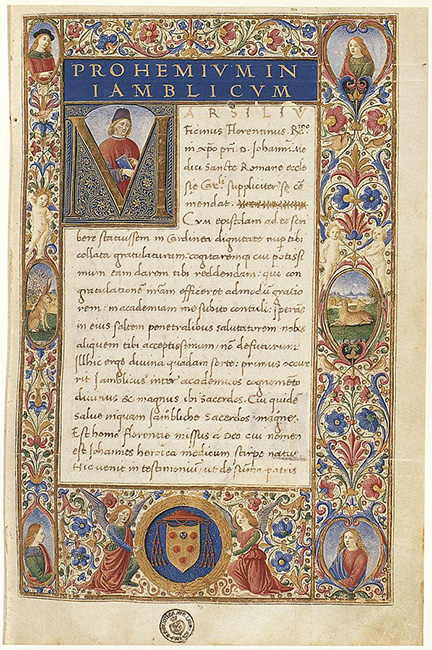 PROHEMIVM IN
IAMBLICVM
MARSILIV
Ficinus Florentinus R.mo
in xpo pri. D. Iohanni Me
dici Sancte Romane eccle
sie Car.li suppliciter se cō
mendat.
Cum epistolam ad te scri
bere statuissem in Cardinea dignitate nup tibi
collata gratulaturam: cogitaremq cui potissi
mum eam darem tibi reddendam: qui con
gratulationē nr̄am efficeret admodū gratio
rem: in academiam me subito contuli: Sperās
in eius saltem penetralibus salutaturem nobis
aliquem tibi acceptissimum nō defuturum:
Illhic ergo divina quadam sorte: primus occur
rit Iamblicus inter academicos cognomēto
divinus & magnus ubi sacerdos. Cui quidē
Salve inquam Iambliche Sacerdos magne.
Est homo Florentie missus a Deo cui nomen
est Iohannes heroica medicum stirpe natus
Hic venit in testimoniū: ut de summa patris